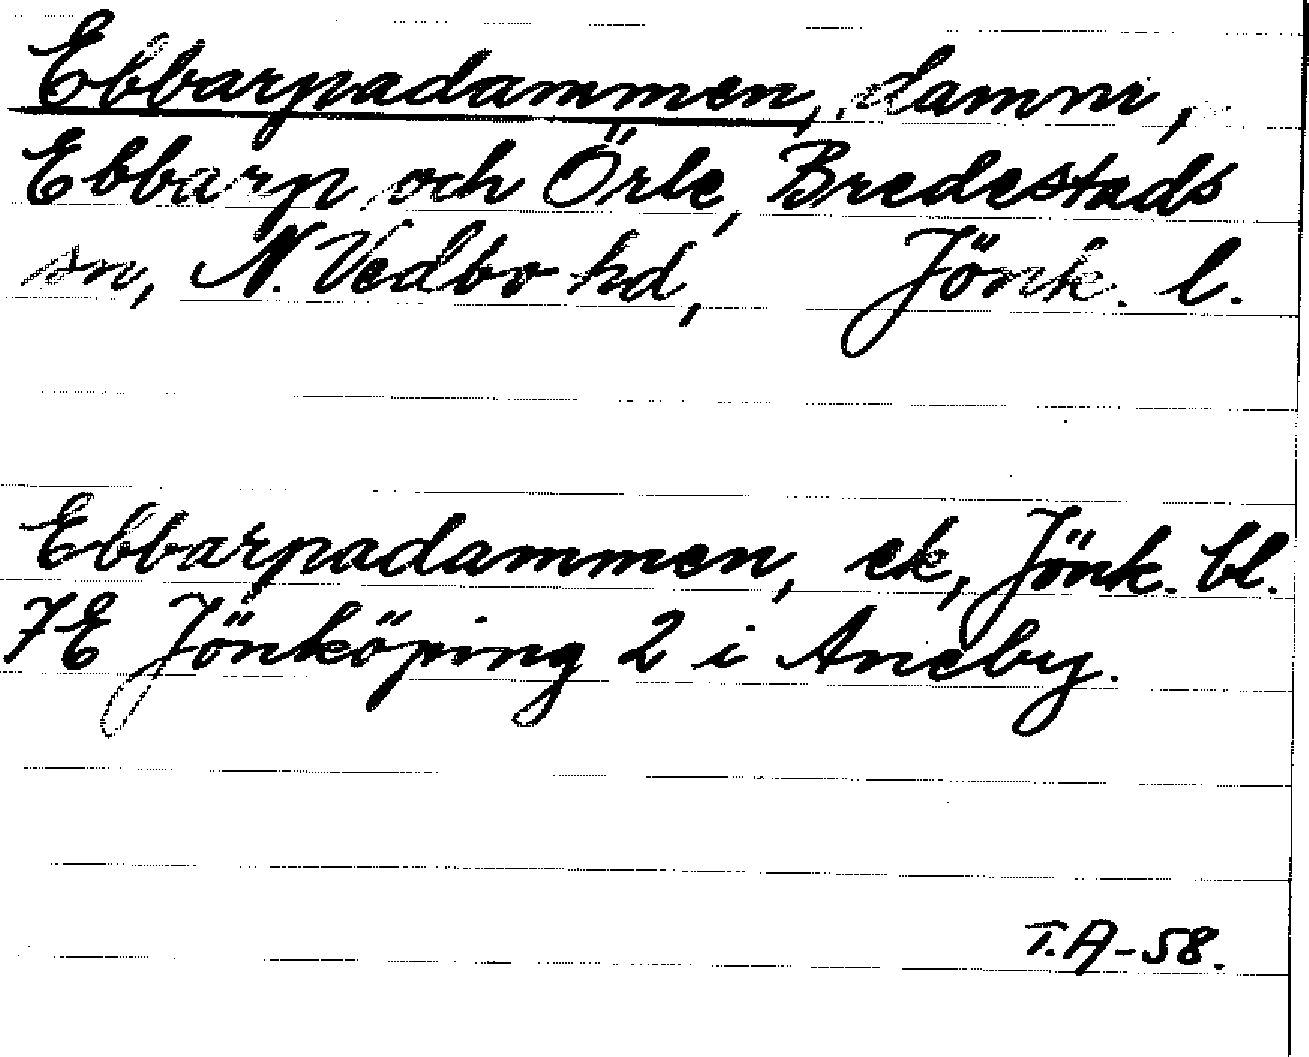 Ebbarpadammen, damm,
Ebbarp och Örle, Bredestads
sn, N. Vedbo hd, Jönk. l.
Ebbarpadammen, ek, Jönk. bl.
7E Jönköping 2 i Aneby.
T.A-58.